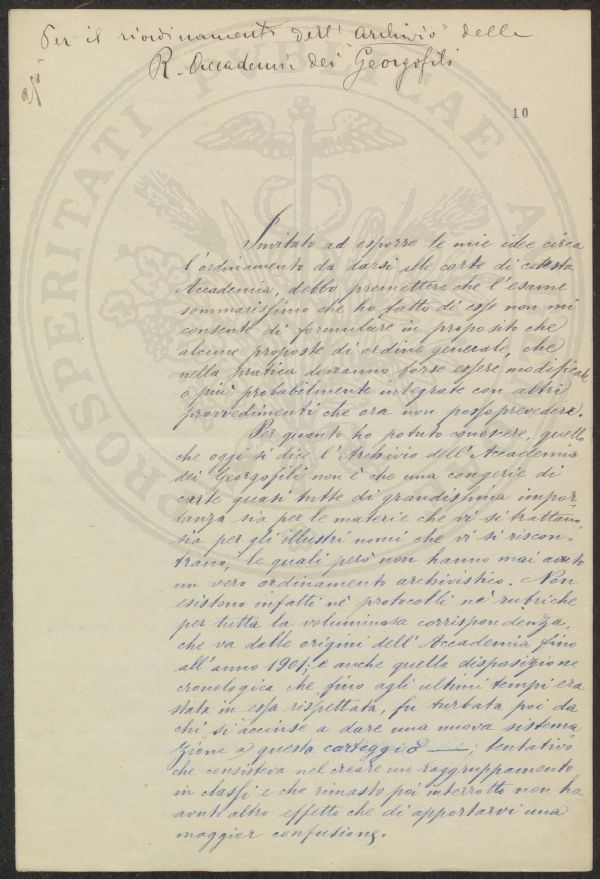 Per il riordinamento dell' "Archivio" delle
R. Accademia dei Georgofili
10
PROSPERITATI PUBLICAE
Invitato ad esporre le mie idee circa
l'ordinamento da darsi alle carte di codesta
Accademia, debbo premettere che l'esame
sommarissimo che ho fatto di esse non mi
consente di formulare in proposito che
alcune proposte di ordine generale, che
nella pratica dovranno forse essere modificate
o più probabilmente integrate con altri
provvedimenti che ora non posso prevedere.
Per quanto ho potuto conoscere, quello
che oggi si dice l'Archivio dell'Accademia
dei Georgofili non è che una congerie di
carte quasi tutte di grandissima impor-
tanza sia per le materie che vi si trattano,
sia per gli illustri nomi che vi si riscon-
trano, le quali però non hanno mai avuto
un vero ordinamento archivistico. Non
esistono infatti nè protocolli nè rubriche
per tutta la voluminosa corrispondenza,
che va dalle origini dell'Accademia fino
all'anno 1901; e anche quella disposizione
cronologica che fino agli ultimi tempi era
stata in essa rispettata, fu turbata poi da
chi si accinse a dare una nuova sistema
zione a questo carteggio —; tentativo
che consisteva nel creare un raggruppamento
in classi e che rimasto poi interrotto non ha
avuto altro effetto che di apportarvi una
maggior confusione.